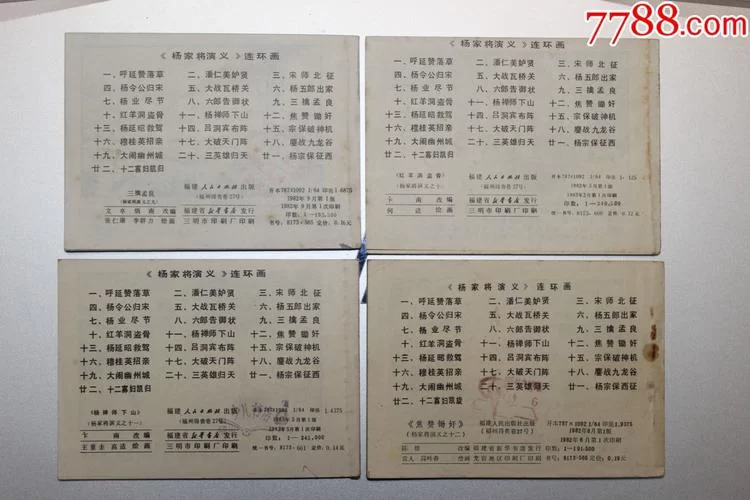 7788.com
《杨家将演义》连环画
一、呼延赞落草 二、潘仁美妒贤 三、宋师北征
四、杨令公归宋 五、大战瓦桥关 六、杨五郎出家
七、杨业尽节 八、六郎告御状 九、三擒孟良
十、红羊洞盗骨 十一、杨禅师下山 十二、焦赞锄奸
十三、杨延昭救驾 十四、吕洞宾布阵 十五、宗保破神机
十六、穆桂英招亲 十七、大破天门阵 十八、鏖战九龙谷
十九、大闹幽州城 二十、三英雄归天 廿一、杨宗保征西
廿二、十二寡妇凯归
三擒孟良
(杨家将演义之九)
福建人民出版社出版
(福州得贵巷27号)
福建省新华书店发行
三明市印刷厂印刷
开本787×1092 1/64 印张1.6875
1982年9月第1版
1982年9月第1次印刷
书号:8173—565 定价:0.16元
《杨家将演义》连环画
一、呼延赞落草 二、潘仁美妒贤 三、宋师北征
四、杨令公归宋 五、大战瓦桥关 六、杨五郎出家
七、杨业尽节 八、六郎告御状 九、三擒孟良
十、红羊洞盗骨 十一、杨禅师下山 十二、焦赞锄奸
十三、杨延昭救驾 十四、吕洞宾布阵 十五、宗保破神机
十六、穆桂英招亲 十七、大破天门阵 十八、鏖战九龙谷
十九、大闹幽州城 二十、三英雄归天 廿一、杨宗保征西
廿二、十二寡妇凯归
《红羊洞盗骨》
(杨家将演义之十)
卞南改编
何进绘画
福建人民出版社出版
(福州得贵巷27号)
福建省新华书店发行
三明市印刷厂印刷
开本787×1092 1/64 印张1.125
印数:1—240,500
书号:8173—600 定价:0.12元
《杨家将演义》连环画
一、呼延赞落草 二、潘仁美妒贤 三、宋师北征
四、杨令公归宋 五、大战瓦桥关 六、杨五郎出家
七、杨业尽节 八、六郎告御状 九、三擒孟良
十、红羊洞盗骨 十一、杨禅师下山 十二、焦赞锄奸
十三、杨延昭救驾 十四、吕洞宾布阵 十五、宗保破神机
十六、穆桂英招亲 十七、大破天门阵 十八、鏖战九龙谷
十九、大闹幽州城 二十、三英雄归天 廿一、杨宗保征西
廿二、十二寡妇凯归
《杨禅师下山》
(杨家将演义之十一)
卞南改编
福建人民出版社出版
(福州得贵巷27号)
福建省新华书店发行
三明市印刷厂印刷
开本787×1092 1/64 印张1.4375
统一书号:8173—601 定价:0.14元
《杨家将演义》连环画
一、呼延赞落草 二、潘仁美妒贤 三、宋师北征
四、杨令公归宋 五、大战瓦桥关 六、杨五郎出家
七、杨业尽节 八、六郎告御状 九、三擒孟良
十、红羊洞盗骨 十一、杨禅师下山 十二、焦赞锄奸
十三、杨延昭救驾 十四、吕洞宾布阵 十五、宗保破神机
十六、穆桂英招亲 十七、大破天门阵 十八、鏖战九龙谷
十九、大闹幽州城 二十、三英雄归天 廿一、杨宗保征西
廿二、十二寡妇凯旋
《焦赞锄奸》
(杨家将演义之十二)
福建人民出版社出版
(福州得贵巷27号)
福建省新华书店发行
龙岩地区印刷厂印刷
开本787×1092 1/64 印张1.9375
1982年6月第1版
1982年6月第1次印刷
印数:1—191,500
书号:8173—566 定价:0.19元